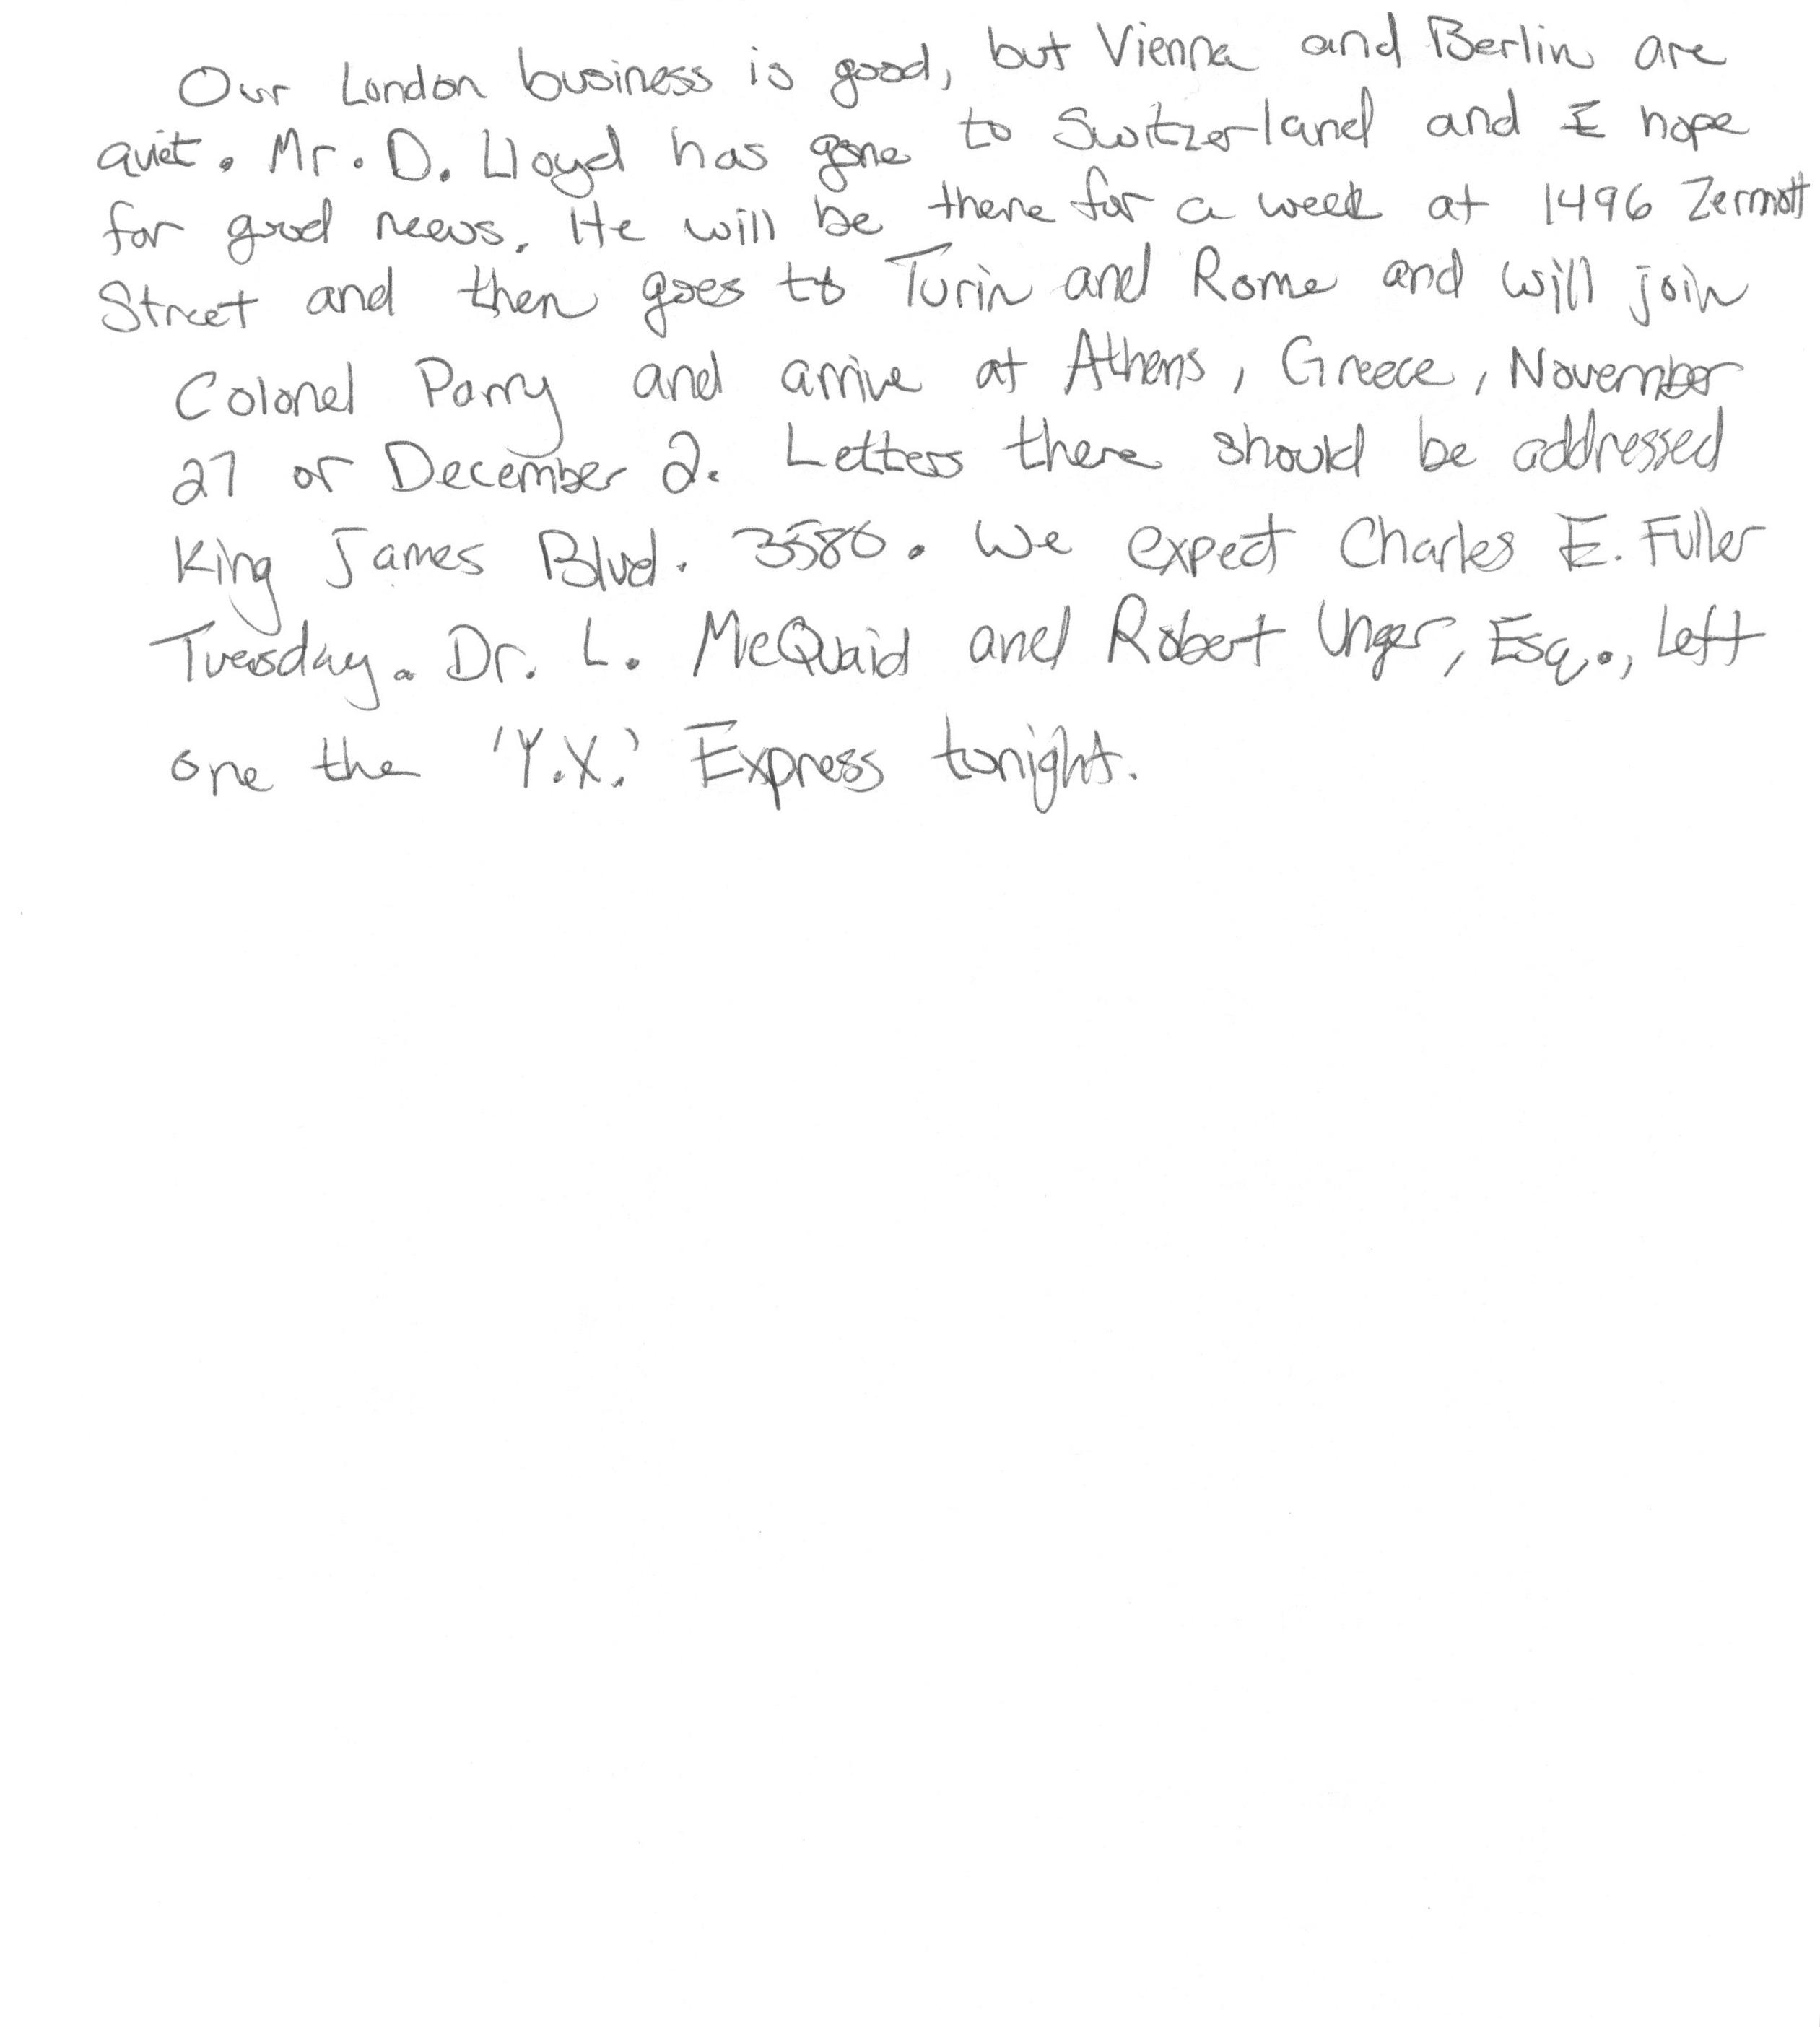 Our London business is good, but Vienna and Berlin are
quiet. Mr. D. Lloyd has gone to Switzerland and I hope
for good news. He will be there for a week at 1496 Zermott
Street and then goes to Turin and Rome and will join
Colonel Parry and arrive at Athens, Greece, November
27 or December 2. Letters there should be addressed
King James Blvd. 3580. We expect Charles E. Fuller
Tuesday. Dr. L. McQuaid and Robert Unger, Esq., left
one the 'Y.X.' Express tonight.